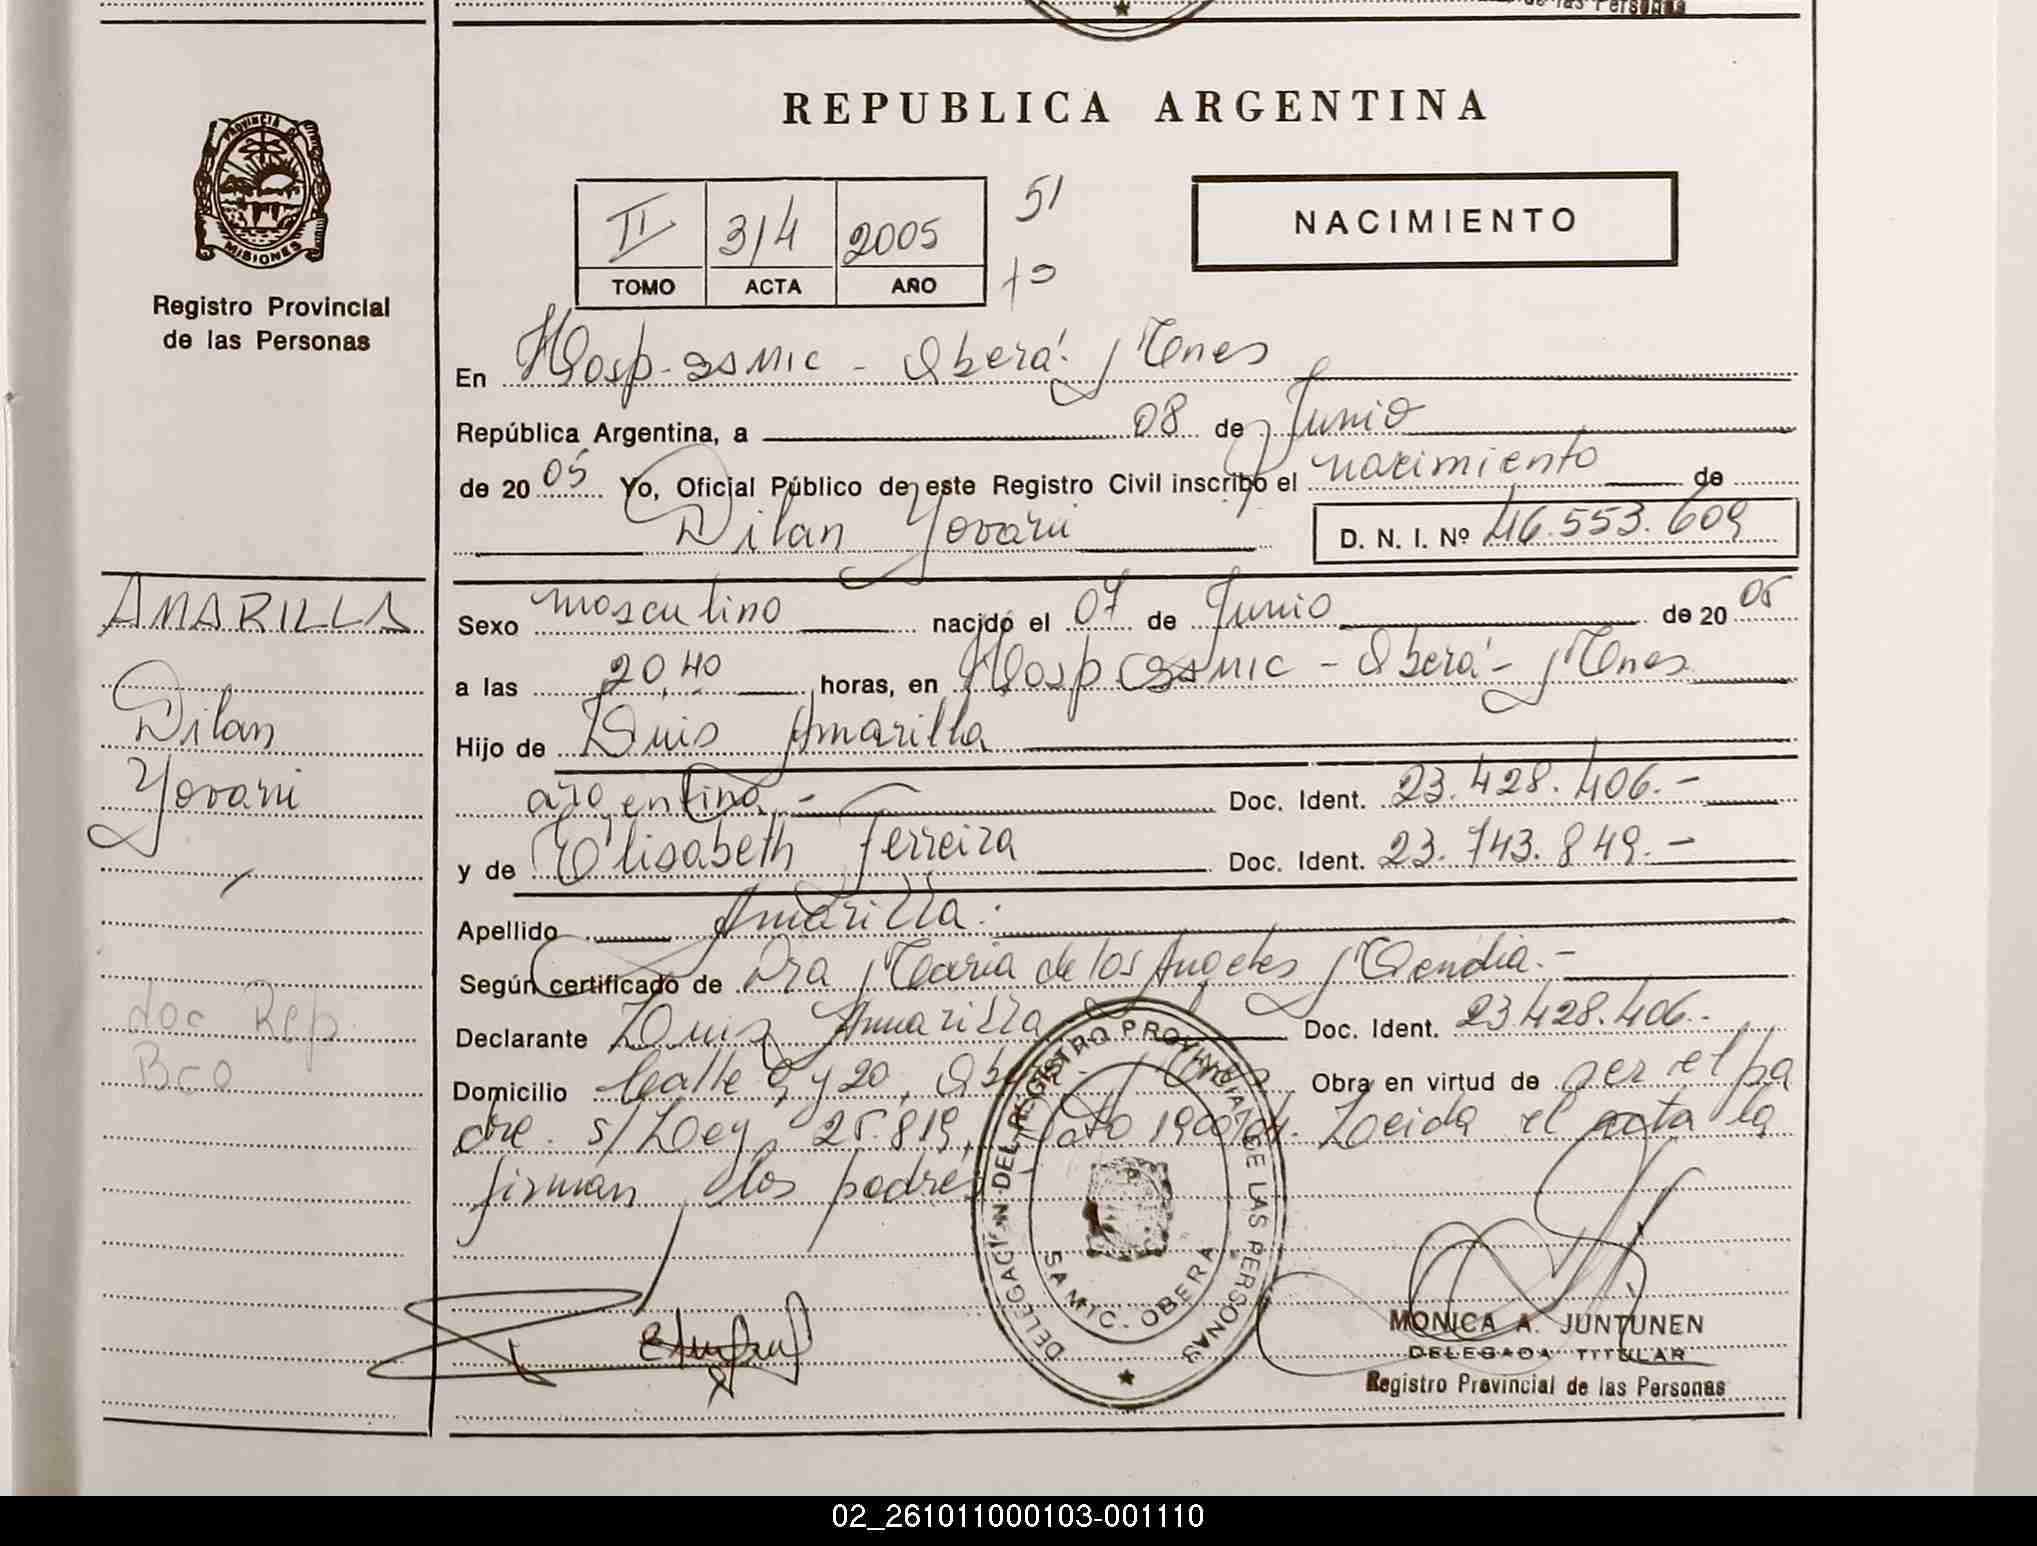 de las Personas
REPUBLICA ARGENTINA
PROVINCIA DE
MISIONES
Registro Provincial
de las Personas
II 314 2005
TOMO ACTA AÑO
51
NACIMIENTO
En Hosp. SAMIC - Oberá - Mnes
República Argentina, a 08 de Junio
de 2005 Yo, Oficial Público de este Registro Civil inscribo el nacimiento de
Dilan Yovani D. N. I. Nº 46.553.609
AMARILLA
Dilan
Yovani
doc Rep
Bco
Sexo masculino nacido el 07 de Junio de 2005
a las 20,40 horas, en Hosp SAMIC - Oberá - Mnes
Hijo de Luis Amarilla
argentino.- Doc. Ident. 23.428.406.-
y de Elisabeth Ferreira Doc. Ident. 23.743.849.-
Apellido Amarilla.
Según certificado de Dra Maria de los Angeles Mendia.-
Declarante Luis Amarilla Doc. Ident. 23.428.406.-
Domicilio Calle 9 y 20, Oberá - Mnes Obra en virtud de ser el pa
dre. s/Ley 25.819, Dto 1900/04. Leida el acta la
firman los padres
DELEGACIÓN DEL REGISTRO PROVINCIAL DE LAS PERSONAS
SAMIC. OBERA
MONICA A. JUNTUNEN
DELEGADA TITULAR
Registro Provincial de las Personas
02_261011000103-001110